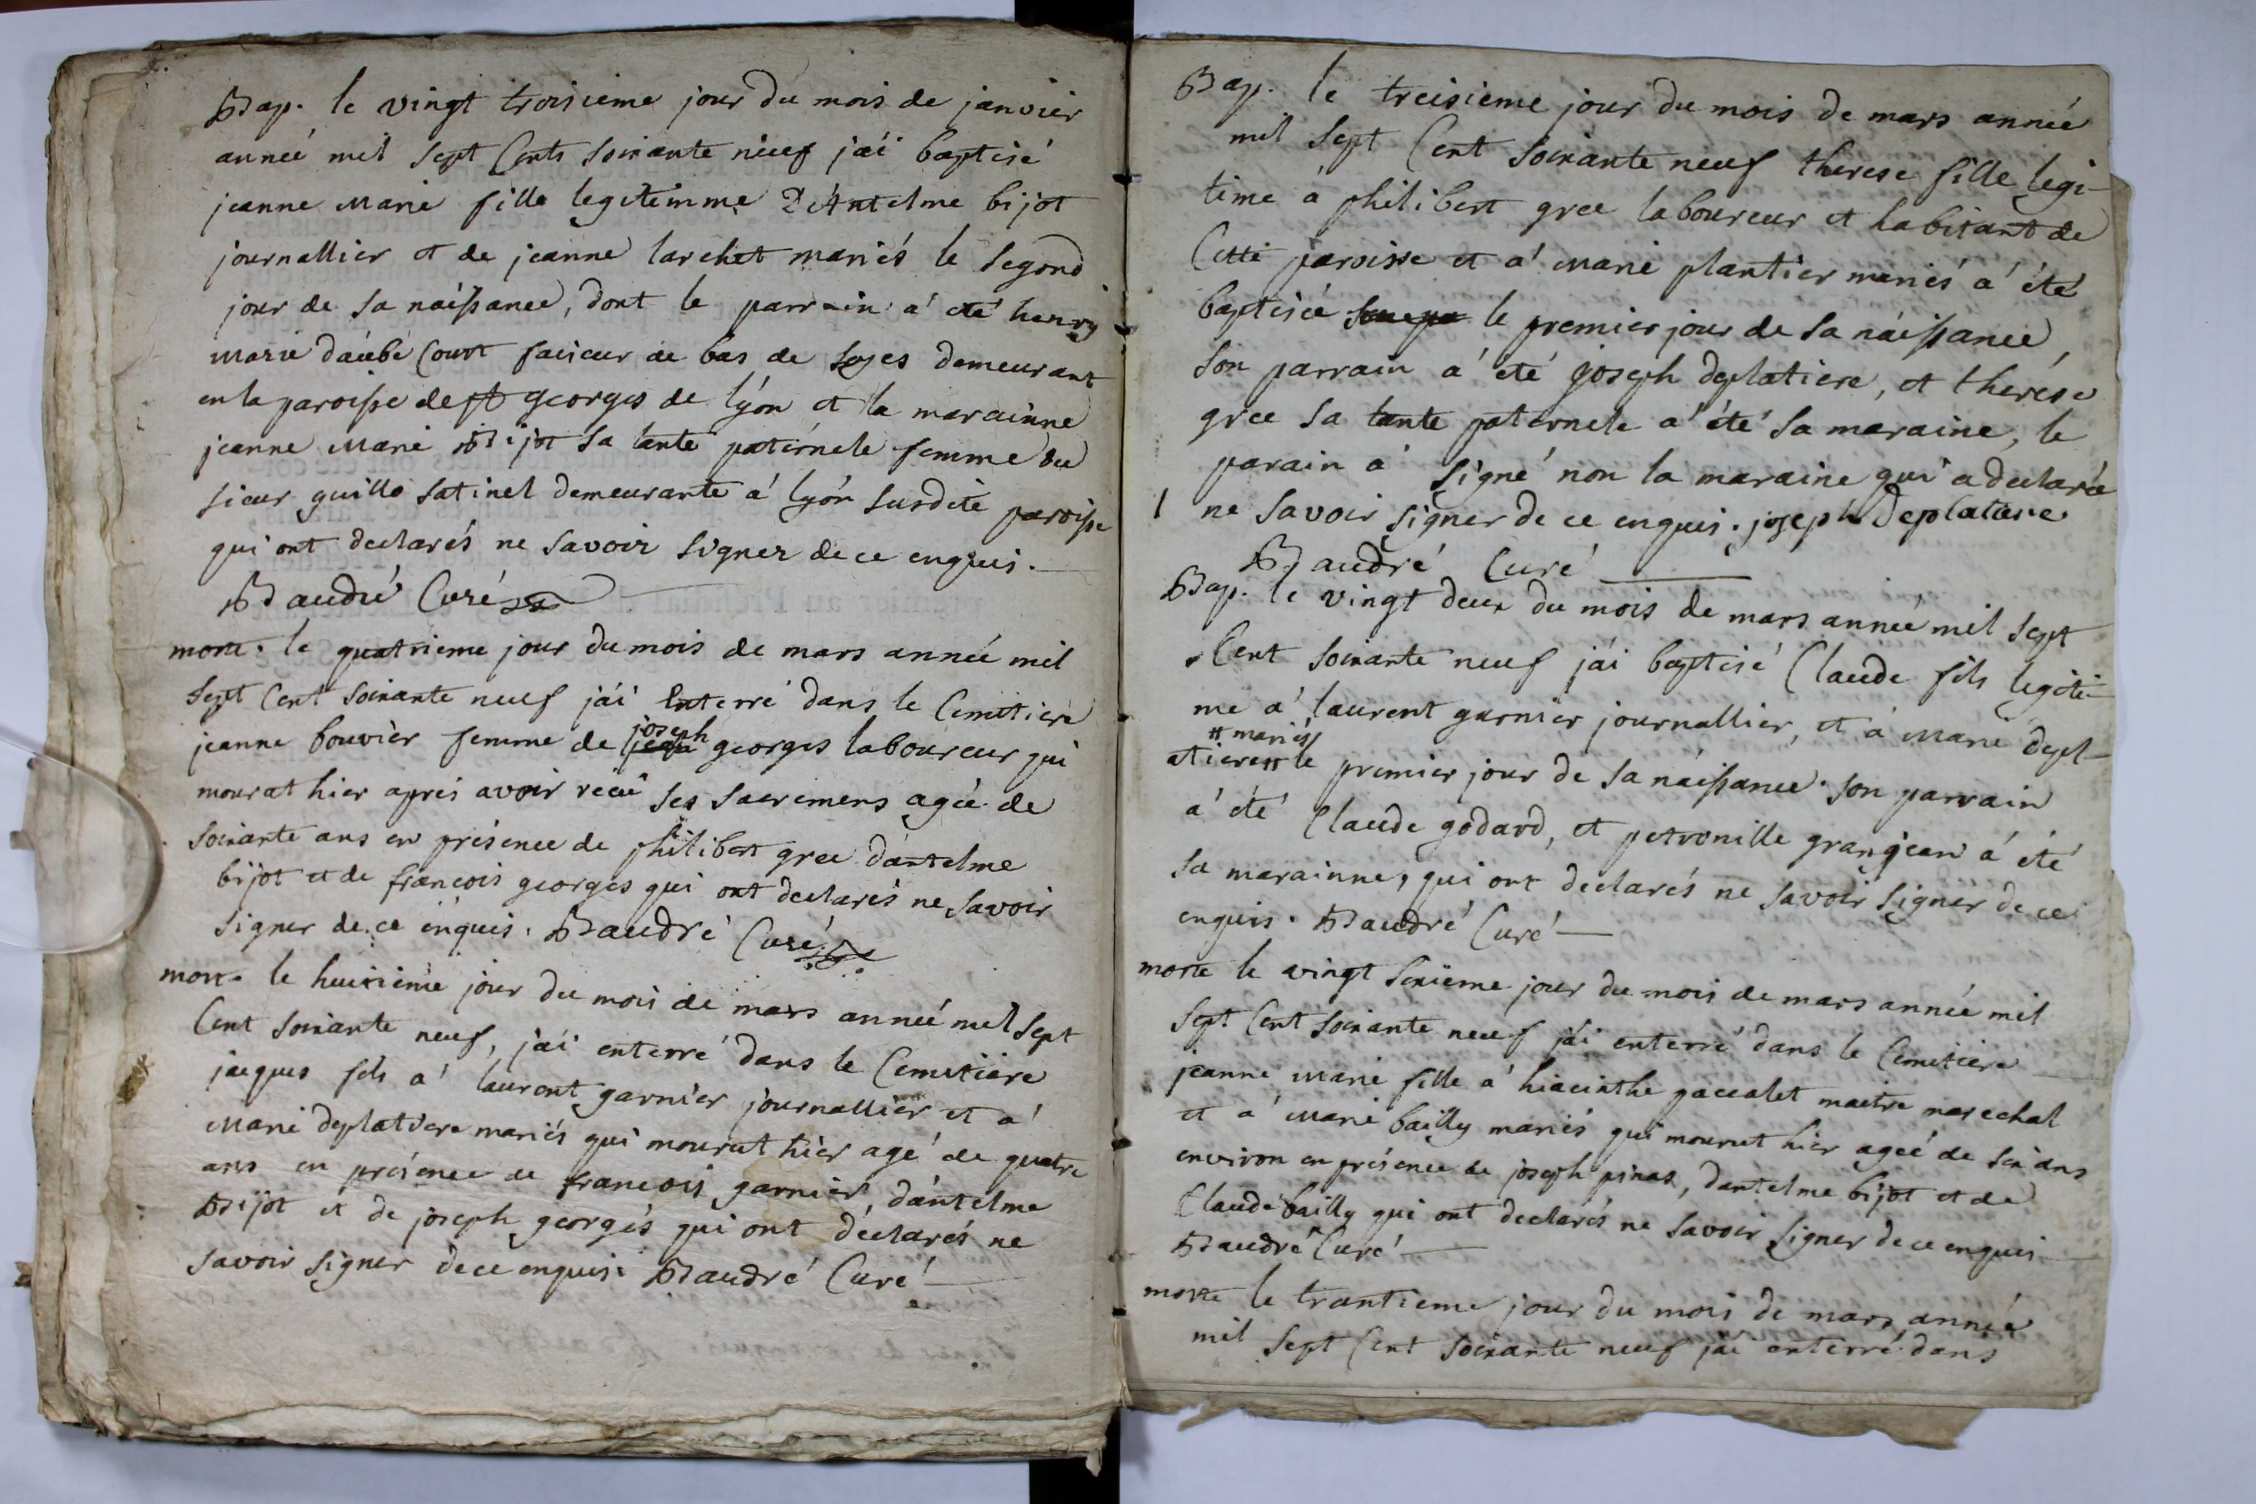 Bap. le vingt troisieme jour du mois de janvier
anneé mil sept Cents soixante neuf j'ái baptisé
jeanne Marie fille legitimme D'Antelme bijot
journallier et de jeanne larchet mariés le segond
jour de sa náissance, dont le parrain a' eté henry
marie d'aubé Court faiseur de bas de soyes demeurant
en la paroisse de st georges de lyón et la marainne
jeanne Marie Bijot sa tante paternele femme du
sieur guillo satinel demeurante á lyón susdite paroisse
qui ont declarés ne savoir signer de ce enquis.
Baudré Curé
morte. le quatrieme jour du mois de mars anneé mil
sept Cent soixante neuf j'ái Enterré dans le Cimetiere
jeanne bouvier femme de joseph georges laboureur qui
mourat hier aprés avoir reçu ses sacremens ageé de
soixante ans en présence de philibert gree d'antelme
bijot et de françois georges qui ont declarés ne savoir
signer de ce enquis. Baudré Curé
mort. le huitiéme jour du mois de mars anneé mil sept
Cent soixante neuf, j'ái enterré dans le Cimetiére
jacques fils a' laurent garnier journallier et a'
Marie deplatiere mariés qui mourut hier agé de quatre
ans en présence de francois garnier, d'ántelme
Bijot et de joseph georgés qui ont déclarés ne
savoir signer de ce enquis. Baudré Curé
Bap. le treisieme jour du mois de mars anneé
mil sept Cent soixante neuf therese fille legi-
time á philibert gree laboureur et habitant de
Cette paroisse et a' Marie plantier mariés a' été
baptiseé le premier jour de sa náissance,
son parrain a' été joseph deplatiere, et therése
gree sa tante paternele a' été sa maraine, le
parain a' signé non la maraine qui a declaré
ne savoir signer de ce enquis. joseph Deplatiere
Baudré Curé
Bap. le vingt deux du mois de mars anneé mil sept
Cent soixante neuf j'ái baptisé Claude fils legiti-
me a' laurent garnier journallier, et á Marie depl-
# mariés
atiere # le premier jour de sa náissance. son parrain
a' été Claude godard, et petronille granjean a' été
sa marainne, qui ont declarés ne savoir signer de ce
enquis. Baudré Curé
morte le vingt sixieme jour du mois de mars anneé mil
sept Cent soixante neuf j'ái enterré dans le Cimetiere
jeanne Marie fille a' hiacinthe paccalet maitre marechal
et a' Marie bailly mariés qui mourut hier ageé de six ans
environ en présence de joseph pinas, d'antelme bijot et de
Claude bailly qui ont declarés ne savoir signer de ce enquis
Baudré Curé
morte le trantieme jour du mois de mars anneé
mil sept Cent soixante neuf j'ái enterré dans